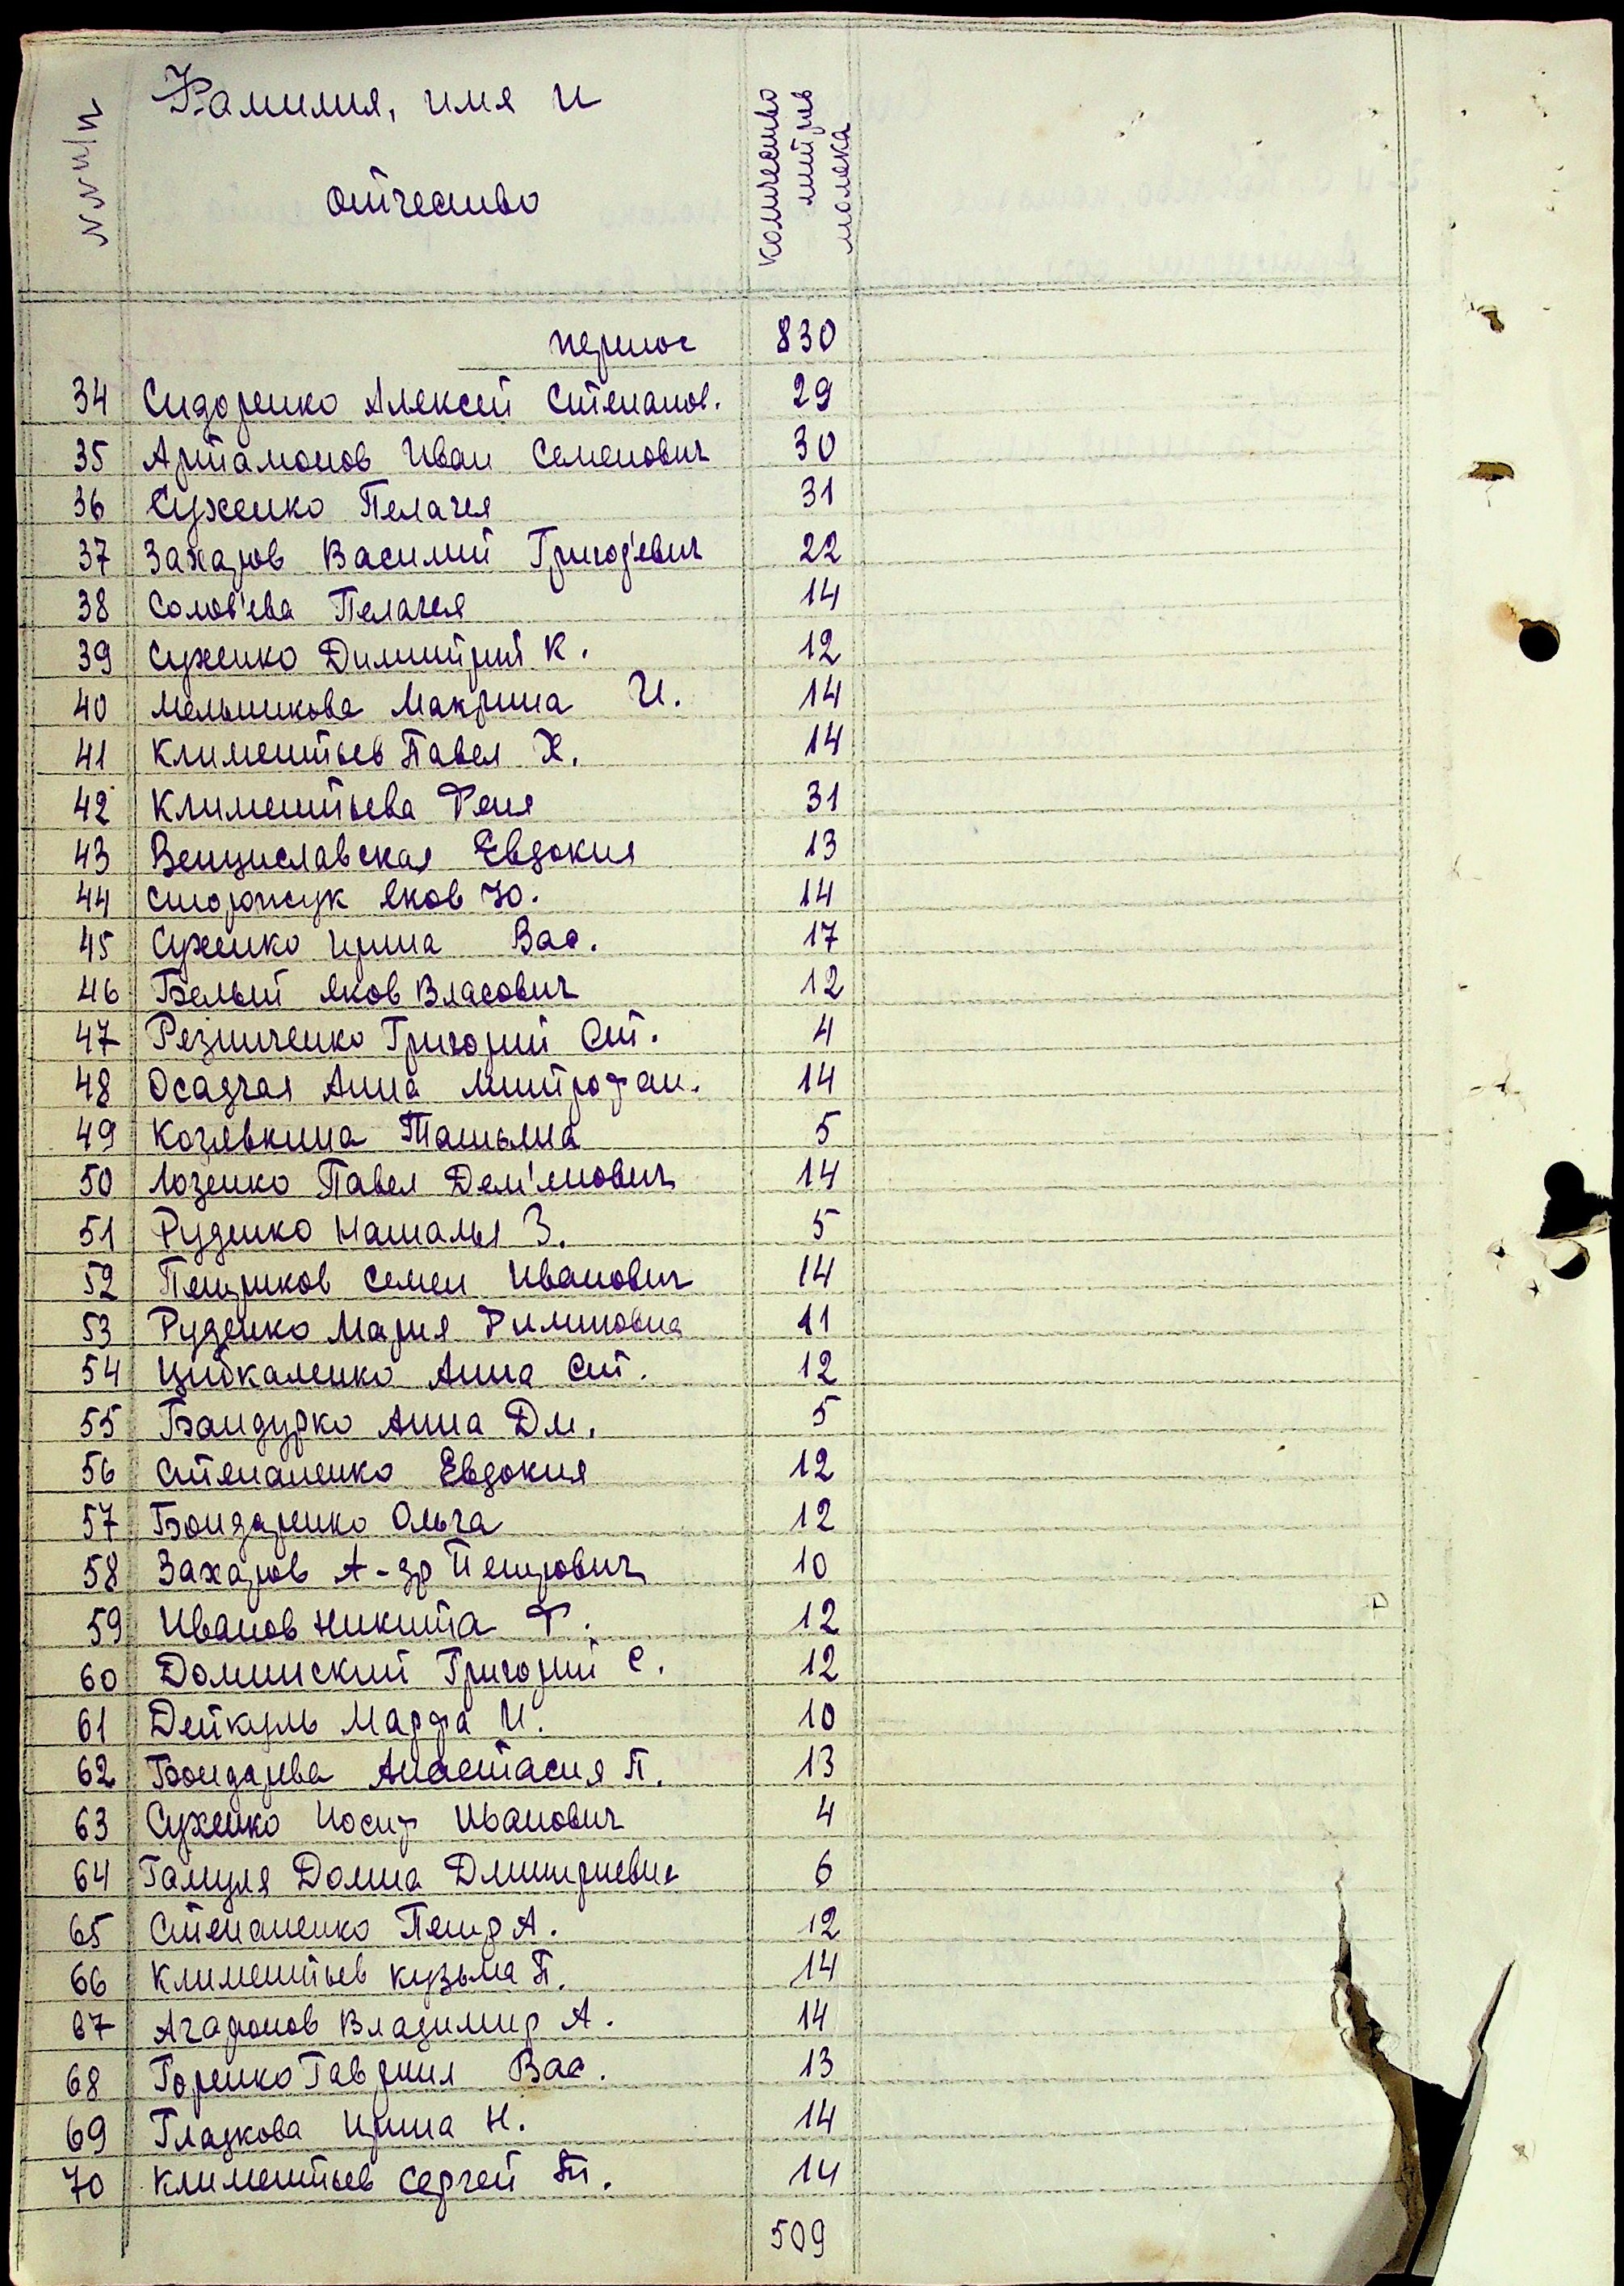 №№ п/п
Фамилия, имя и
отчество
количество
литров
молока
перенос 830
34 Сидоренко Алексей Степанов. 29
35 Артамонов Иван Семенович 30
36 Суженко Пелагея 31
37 Захаров Василий Григор'евич 22
38 Солов'ева Пелагея 14
39 Суженко Димитрий К. 12
40 Мельникова Макрина И. 14
41 Климентьев Павел Х. 14
42 Климентьева Феня 31
43 Венциславская Евдокия 13
44 Сторожук Яков Ю. 14
45 Суженко Ирина Вас. 17
46 Белый Яков Власович 12
47 Резниченко Григорий Ст. 4
48 Осадчая Анна Митрофан. 14
49 Козявкина Татьяна 5
50 Лозенко Павел Дем'янович 14
51 Руденко Наталья З. 5
52 Петриков Семен Иванович 14
53 Руденко Мария Филиповна 11
54 Цибкаленко Анна Ст. 12
55 Бандурко Анна Дм. 5
56 Степаненко Евдокия 12
57 Бондаренко Ольга 12
58 Захаров А-др Петрович 10
59 Иванов Никита Ф. 12
60 Долинский Григорий С. 12
61 Дейкуль Марфа И. 10
62 Бондарева Анастасия П. 13
63 Суженко Иосиф Иванович 4
64 Галуля Домна Дмитриевна 6
65 Степаненко Петр А. 12
66 Климентьев Кузьма П. 14
67 Агафонов Владимир А. 14
68 Горенко Гавриил Вас. 13
69 Гладкова Ирина Н. 14
70 Климентьев Сергей П. 14
509